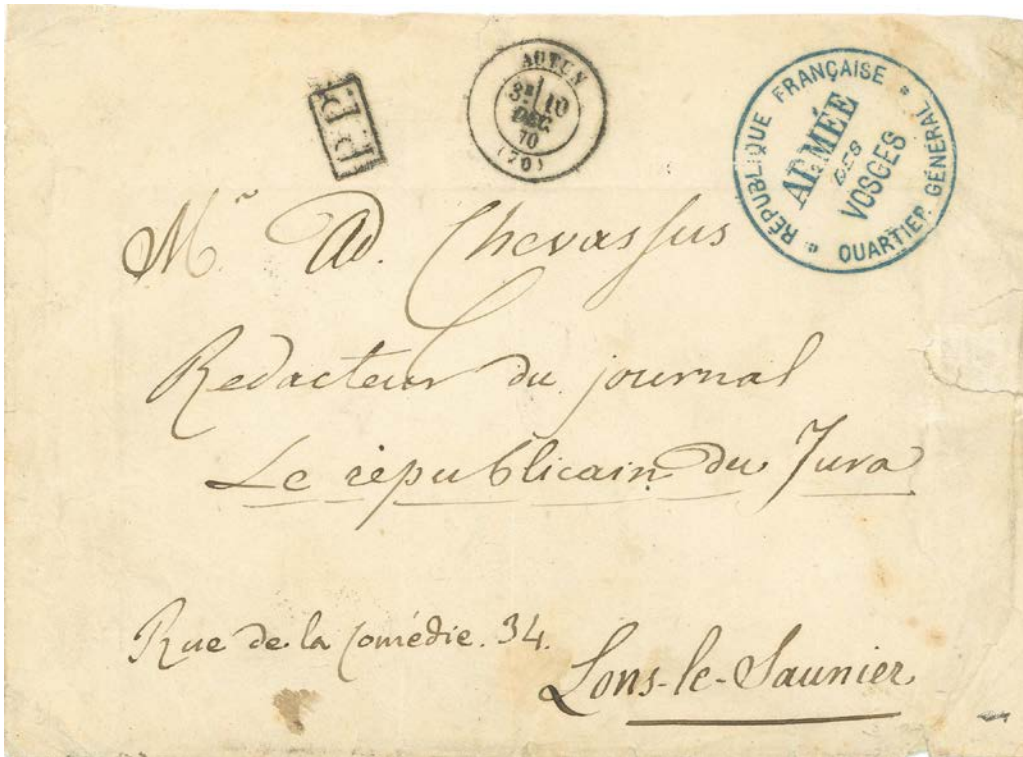 P.P.
AUTUN
3E 10
DEC.
70
(70)
RÉPUBLIQUE FRANÇAISE
ARMÉE
DES
VOSGES
QUARTIER GÉNÉRAL
Mr. Ad. Chevassus
Redacteur du journal
Le républicain du Jura
Rue de la Comédie. 34.
Lons-le-Saunier